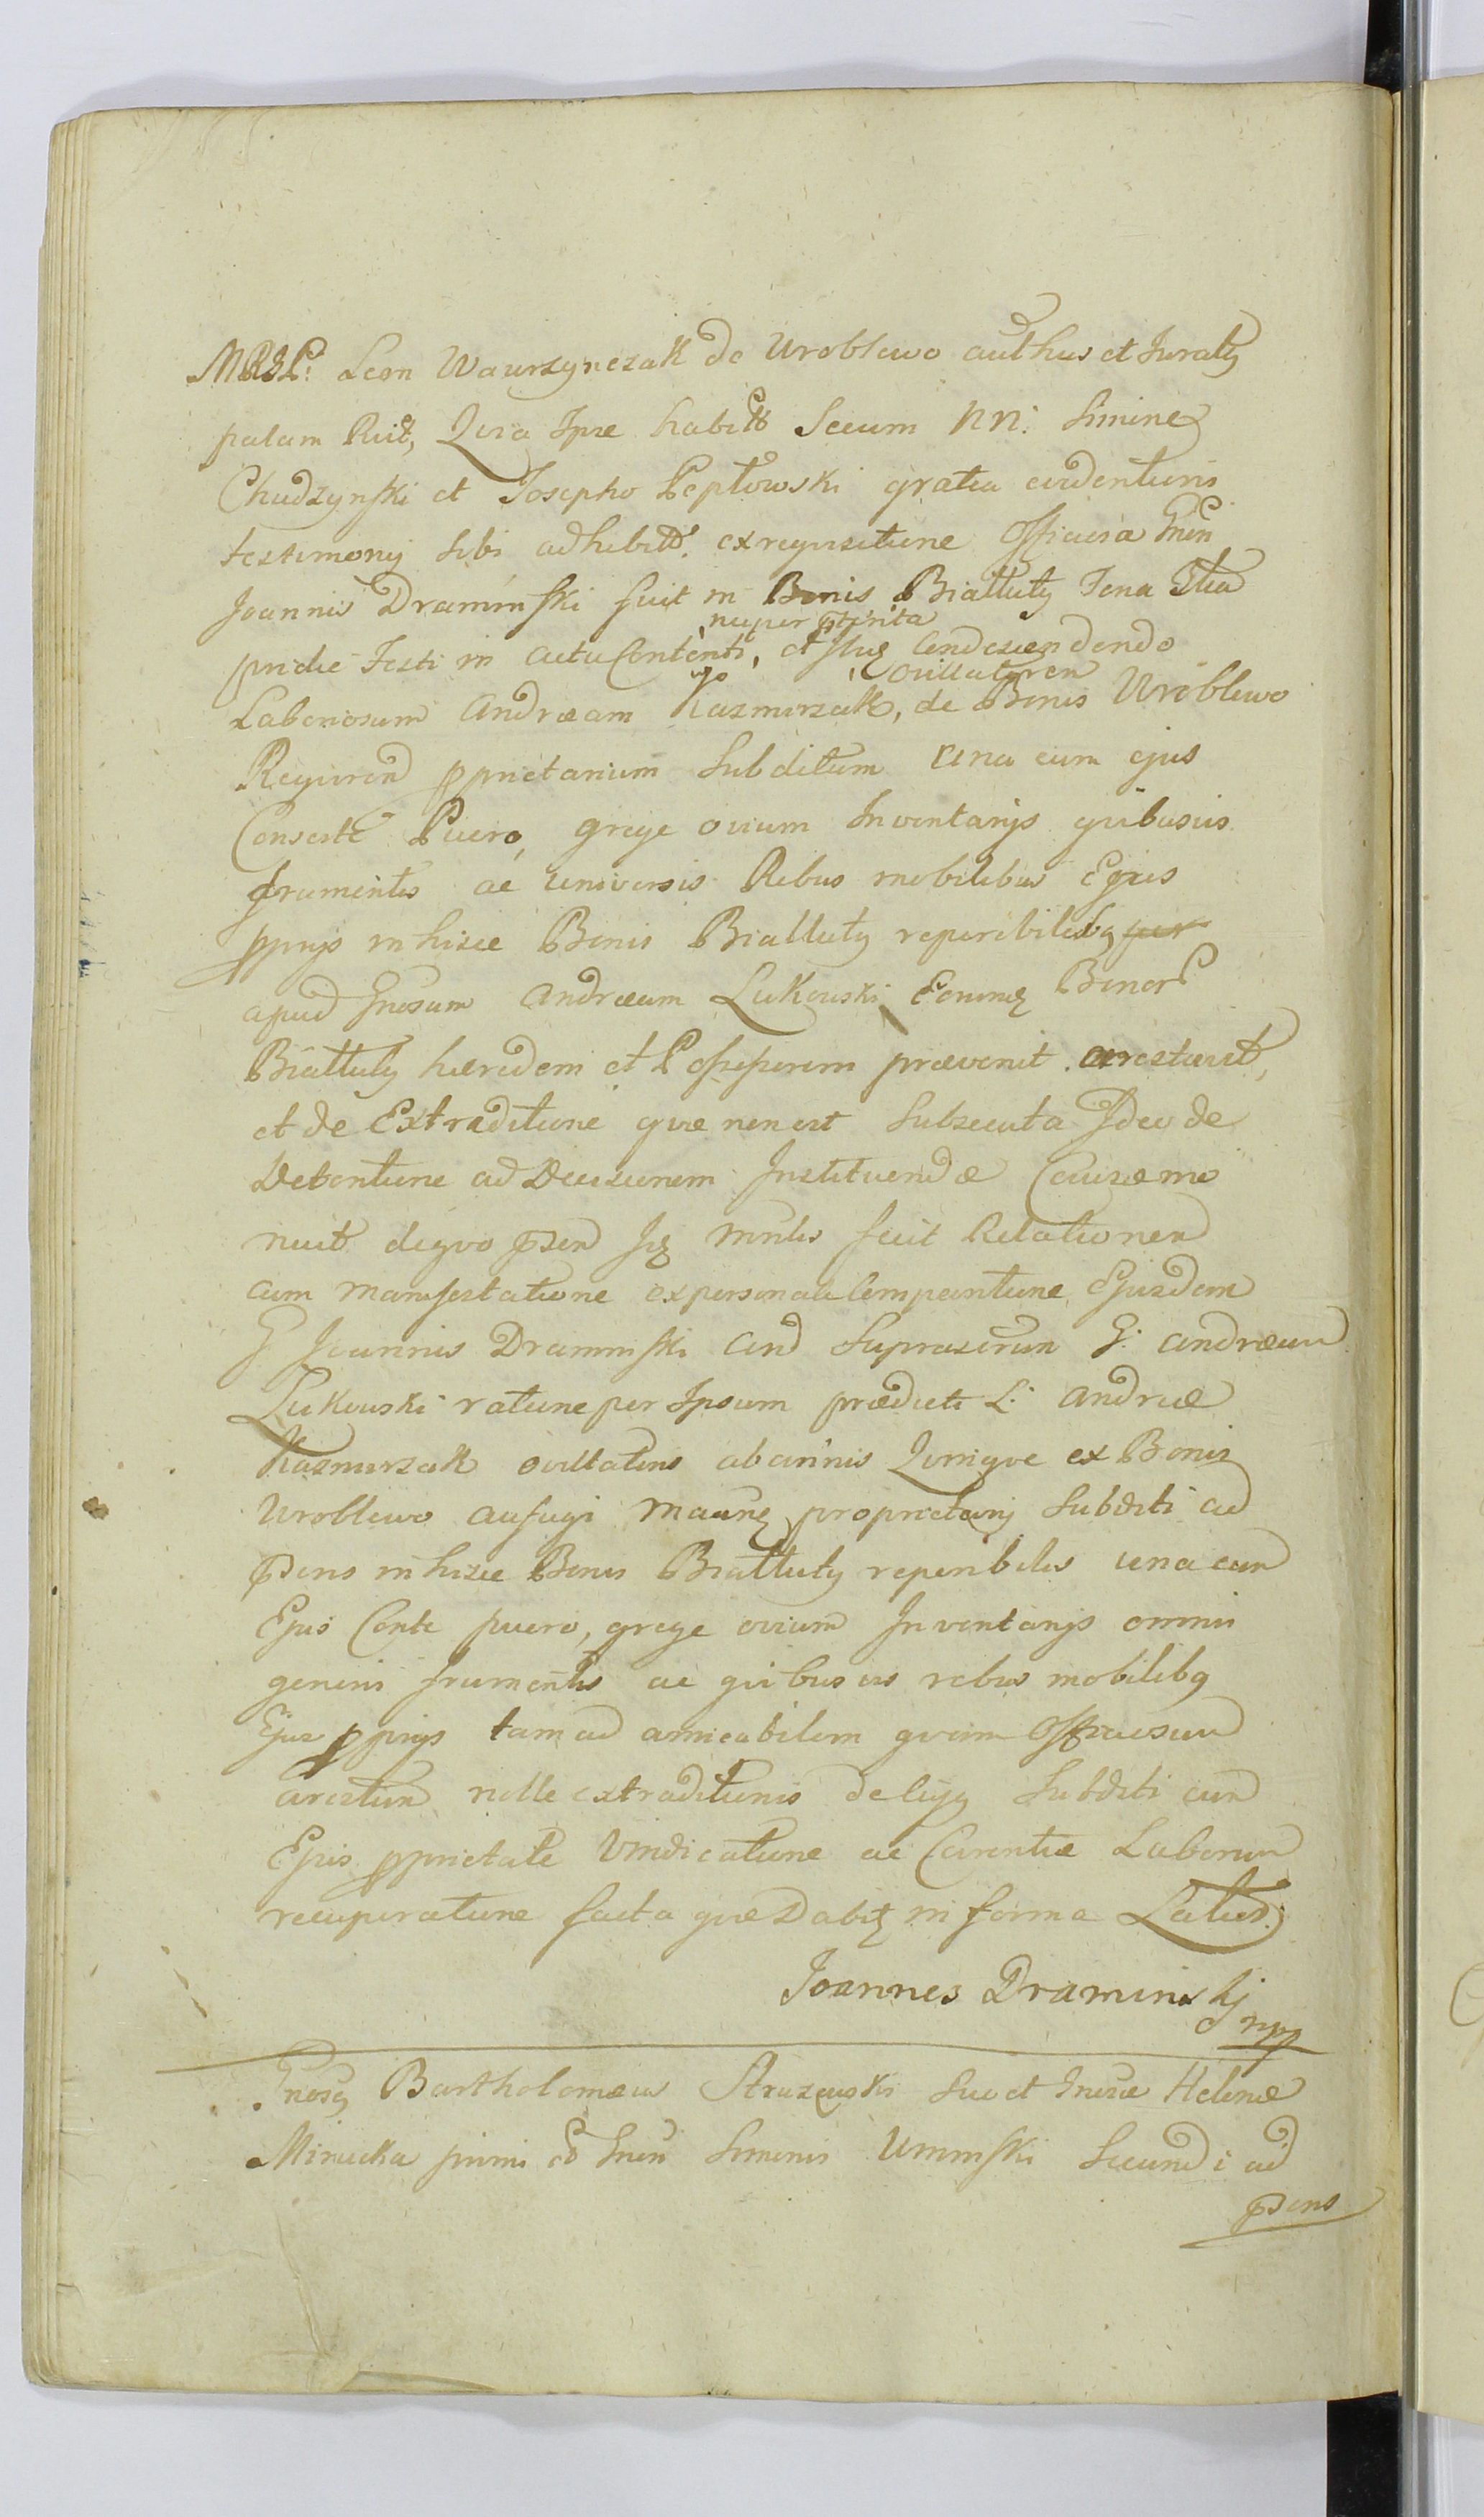 MRGP: Leon Wawrzynczak de Wroblewo authus et Juratg
palam Rcit, Quia Ipse habitt Secum NN: Simine
Chudzynski et Josepho Peptowski gratia evidentioris
testimonij sibi adhibitt. ex requisitione Officiosa Gnsi
Joannis Draminski fuit in Bonis Biattuty Feria
pridie Festi in actu Contenti, nuper pterita et condescendendo
Laboriosum Andream Kazmirzak, ovillatorem de Bonis Wroblewo
Requiren pprietarium Subditum una cum ejus
Consorte Puero, grege ovium Inventarijs quibusvis
frumentis ac universis Rebus mobilibus Ejus
pprijs in hisce Bonis Biattuty reperibilibg
apud Gnosum Andream Lukowski Eorumq Bonor
Biattuty haeredem et Possessorem praevenit arestavit,
et de Extraditione quae non est Subsecuta Ideo de
Detentione ad Decisionem Instituendae Causae mo
nuit de quo psen Jq mnlis fecit Relationem
cum manifestatione ex personali Comparitione Ejusdem
G Joannis Draminski con Suprascrium G: Andream
Lukowski ratione per Ipsum praedicti L: Andreae
Kazmirzak ovillatoris ab annis Quinque ex Bonis
Wroblewo aufugi proprietarij Subditi ad
psens in hisce Bonis Biattuty reperibilis una cum
Ejus Conte puero, grege ovium Inventarijs omnis
generis frumentis ac quibusvis rebus mobilibg
Ejus pprijs tam ad amicabilem quam Officiosum
arestum nolle extraditionis de Subditi cum
Ejus pprietate Vindicatione ac Carentiae Laborum
recuperatione facta quae Dabitq in forma Latius
Joannes Draminskj
mpp
Gnosq Bartholomaeus Struzewski suo et Gnosae Helenae
Mirucka primi Gnsi Simonis Uminski Secundi ad
psens